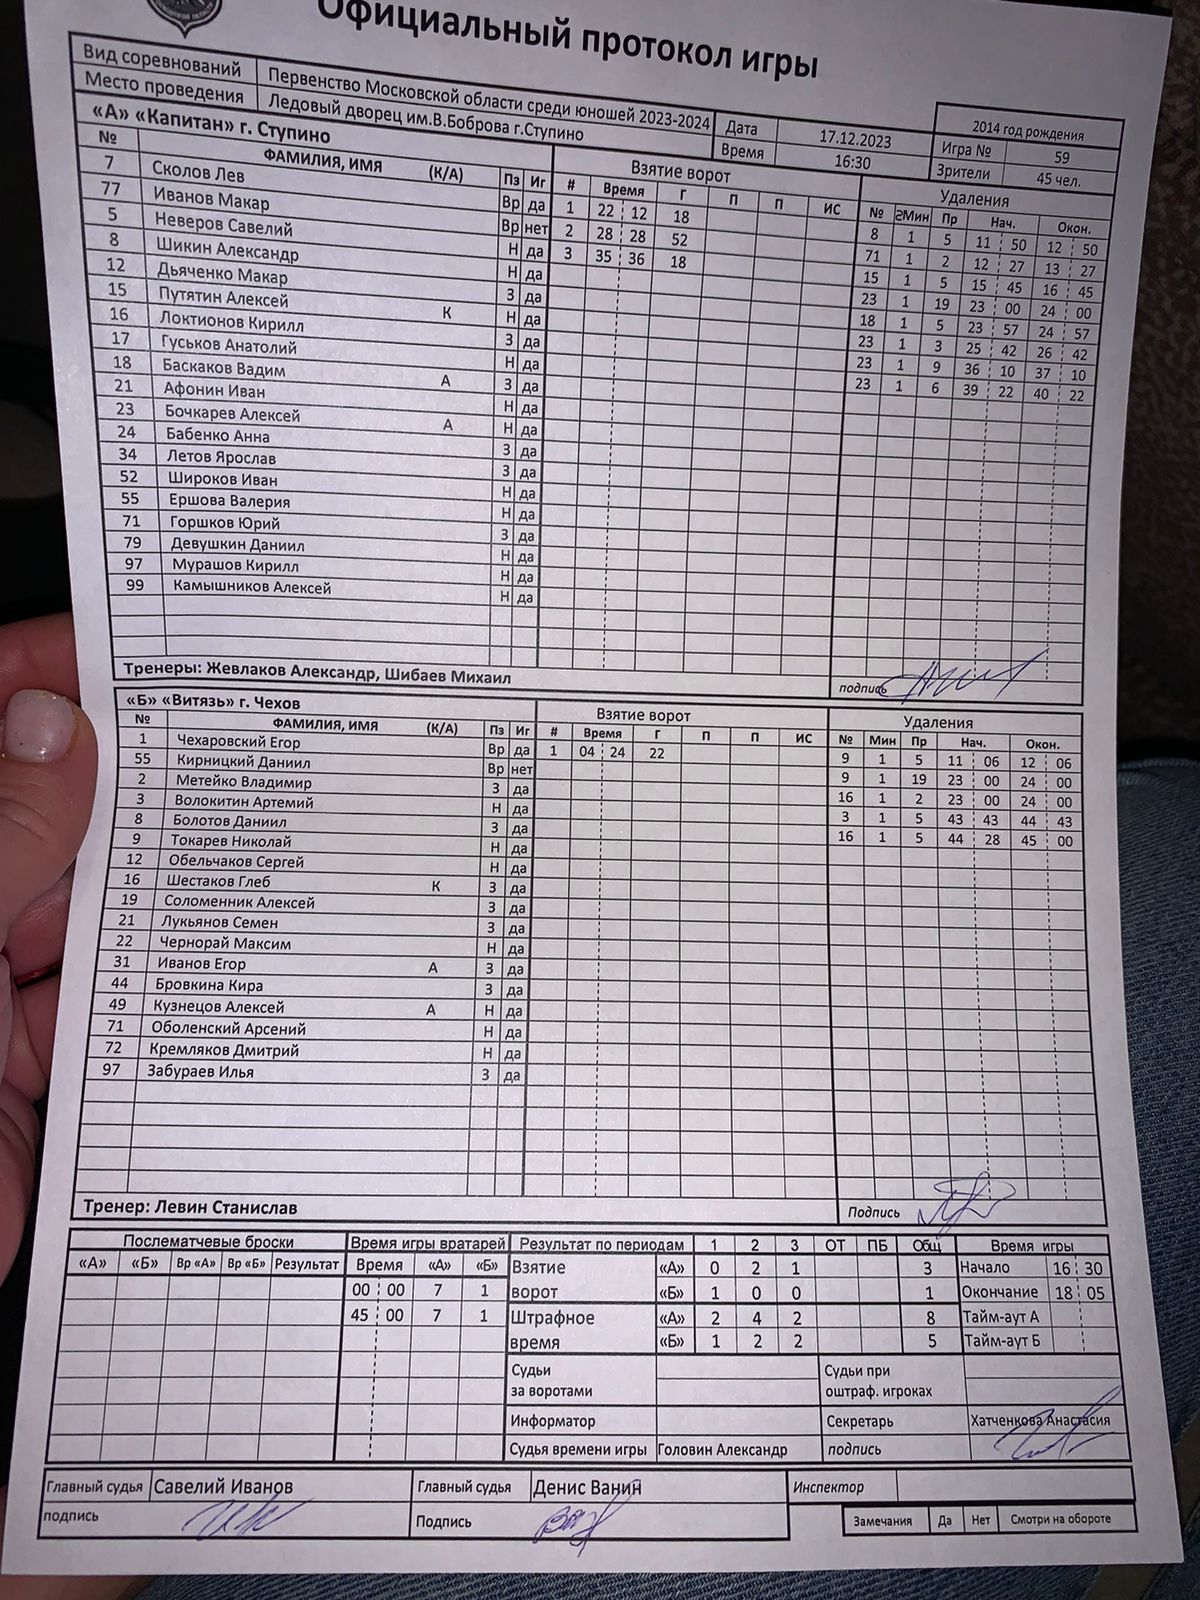 Официальный протокол игры
Вид соревнований Первенство Московской области среди юношей 2023-2024 Дата 17.12.2023 2014 год рождения
Место проведения Ледовый дворец им.В.Боброва г.Ступино Время 16:30 Игра № 59
Зрители 45 чел.
«А» «Капитан» г. Ступино Взятие ворот Удаления
№ ФАМИЛИЯ, ИМЯ (К/А) Пз Иг # Время Г П П ИС № Мин Пр Нач. Окон.
7 Сколов Лев Вр да 1 22 12 18 8 1 5 11 50 12 50
77 Иванов Макар Вр нет 2 28 28 52 71 1 2 12 27 13 27
5 Неверов Савелий Н да 3 35 36 18 15 1 5 15 45 16 45
8 Шикин Александр Н да 23 1 19 23 00 24 00
12 Дьяченко Макар З да 18 1 5 23 57 24 57
15 Путятин Алексей К Н да 23 1 3 25 42 26 42
16 Локтионов Кирилл З да 23 1 9 36 10 37 10
17 Гуськов Анатолий Н да 23 1 6 39 22 40 22
18 Баскаков Вадим А З да
21 Афонин Иван Н да
23 Бочкарев Алексей А Н да
24 Бабенко Анна З да
34 Летов Ярослав З да
52 Широков Иван Н да
55 Ершова Валерия Н да
71 Горшков Юрий З да
79 Девушкин Даниил Н да
97 Мурашов Кирилл Н да
99 Камышников Алексей Н да
Тренеры: Жевлаков Александр, Шибаев Михаил подпись
«Б» «Витязь» г. Чехов Взятие ворот Удаления
№ ФАМИЛИЯ, ИМЯ (К/А) Пз Иг # Время Г П П ИС № Мин Пр Нач. Окон.
1 Чехаровский Егор Вр да 1 04 24 22 9 1 5 11 06 12 06
55 Кирницкий Даниил Вр нет 9 1 19 23 00 24 00
2 Метейко Владимир З да 16 1 2 23 00 24 00
3 Волокитин Артемий Н да 3 1 5 43 43 44 43
8 Болотов Даниил З да 16 1 5 44 28 45 00
9 Токарев Николай Н да
12 Обельчаков Сергей Н да
16 Шестаков Глеб К З да
19 Соломенник Алексей З да
21 Лукьянов Семен З да
22 Чернорай Максим Н да
31 Иванов Егор А З да
44 Бровкина Кира З да
49 Кузнецов Алексей А Н да
71 Оболенский Арсений Н да
72 Кремляков Дмитрий Н да
97 Забураев Илья З да
Тренер: Левин Станислав Подпись
Послематчевые броски Время игры вратарей Результат по периодам 1 2 3 ОТ ПБ Общ Время игры
«А» «Б» Вр «А» Вр «Б» Результат Время «А» «Б» Взятие «А» 0 2 1 3 Начало 16 30
00 00 7 1 ворот «Б» 1 0 0 1 Окончание 18 05
45 00 7 1 Штрафное «А» 2 4 2 8 Тайм-аут А
время «Б» 1 2 2 5 Тайм-аут Б
Судьи Судьи при
за воротами оштраф. игроках
Информатор Секретарь Хатченкова Анастасия
Судья времени игры Головин Александр подпись
Главный судья Савелий Иванов Главный судья Денис Ванин Инспектор
подпись Подпись Замечания Да Нет Смотри на обороте